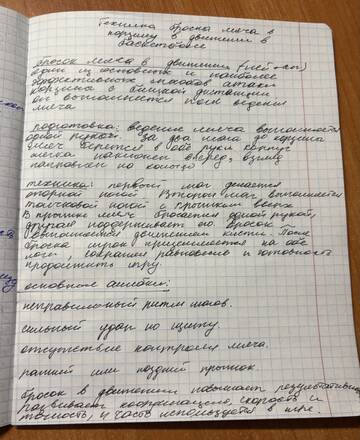 Техника броска мяча в
корзину в движении в
баскетболе
Бросок мяча в движении
один из основных и наиболее
эффективных способов атаки
корзины с близкой дистанции
он выполняется после ведения
мяча
подготовка: ведение мяча выполняется
одной рукой. За два шага до корзины
мяч берется в обе руки корпус
слегка наклонен вперед, взгляд
направлен на кольцо
техника: первый шаг делается
опорной ногой второй шаг выполняется
толчковой ногой с прыжком вверх
В прыжке мяч бросается одной рукой,
другая поддерживает его. Бросок
выполняется движением кисти. После
броска игрок приземляется на обе
ноги, сохраняя равновесие и готовность
продолжить игру.
основные ошибки:
неправильный ритм шагов.
сильный удар по щиту.
отсутствие контроля мяча.
ранний или поздний прыжок.
бросок в движении повышает результативность
развивает координацию, скорость и
точность, и часто используется в игре.